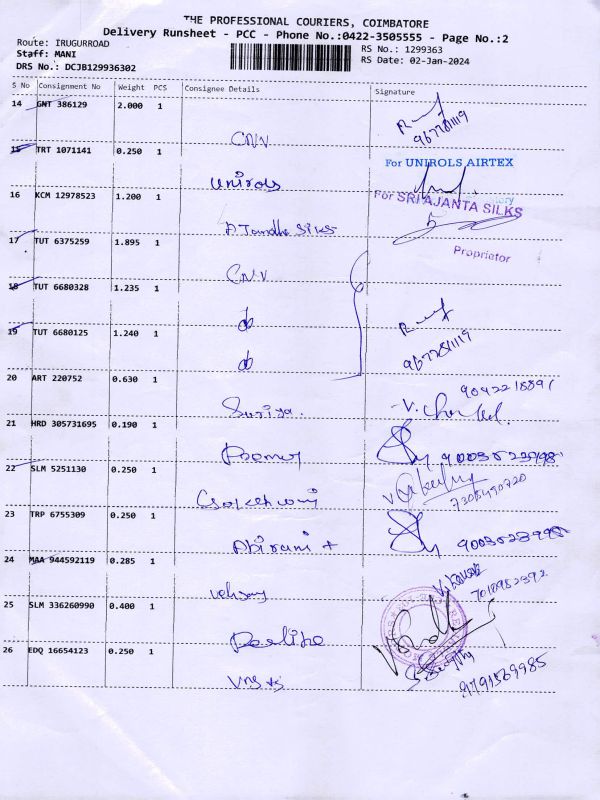 THE PROFESSIONAL COURIERS, COIMBATORE
Delivery Runsheet - PCC - Phone No.:0422-3505555 - Page No.:2
Route: IRUGURROAD
Staff: MANI
DRS No.: DCJB129936302
RS No.: 1299363
RS Date: 02-Jan-2024
S No Consignment No Weight PCS Consignee Details Signature
14 GNT 386129 2.000 1
CNV
9677811119
15 TRT 1071141 0.250 1
For UNIROLS AIRTEX
Unirols
16 KCM 12978523 1.200 1
For SRI AJANTA SILKS
Silks
17 TUT 6375259 1.895 1
Proprietor
CNV
18 TUT 6680328 1.235 1
do
19 TUT 6680125 1.240 1
do
20 ART 220752 0.630 1
Suriya.
21 HRD 305731695 0.190 1
22 SLM 5251130 0.250 1
7305490720
23 TRP 6755309 0.250 1
Abirami
24 MAA 944592119 0.285 1
7018982392
25 SLM 336260990 0.400 1
26 EDQ 16654123 0.250 1
9791569985